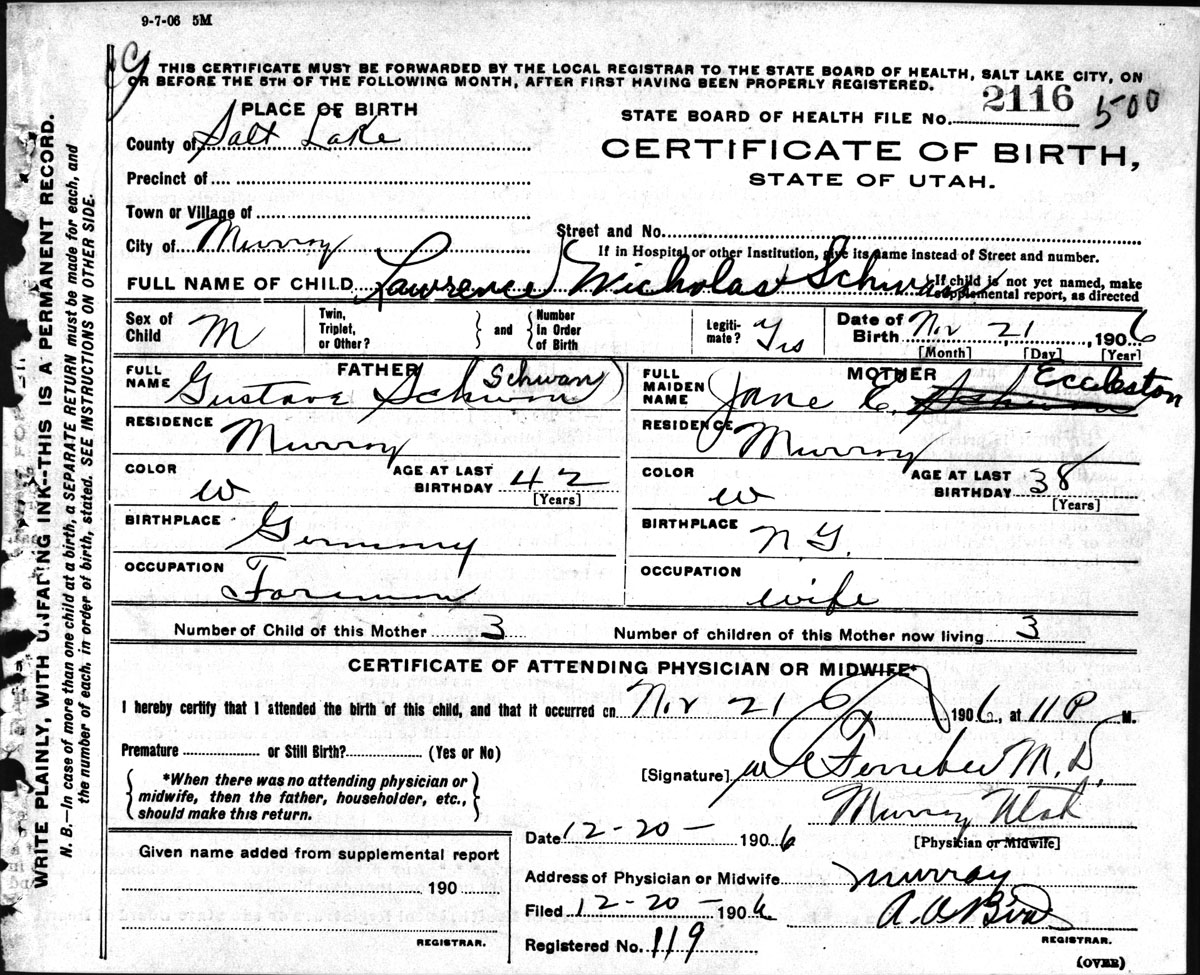 9-7-06 5M
G
THIS CERTIFICATE MUST BE FORWARDED BY THE LOCAL REGISTRAR TO THE STATE BOARD OF HEALTH, SALT LAKE CITY, ON
OR BEFORE THE 5TH OF THE FOLLOWING MONTH, AFTER FIRST HAVING BEEN PROPERLY REGISTERED.
PLACE OF BIRTH
STATE BOARD OF HEALTH FILE No. 2116 500
County of Salt Lake
CERTIFICATE OF BIRTH,
STATE OF UTAH.
Precinct of
Town or Village of
City of Murray
Street and No.
If in Hospital or other Institution, give its name instead of Street and number.
FULL NAME OF CHILD Lawrence Nicholas Schwan
If child is not yet named, make
supplemental report, as directed
Sex of Child M
Twin, Triplet, or Other? and Number In Order of Birth
Legiti-mate? Yes
Date of Birth Nov 21, 1906
[Month] [Day] [Year]
FATHER
FULL NAME Gustave Schwan (Schwan)
RESIDENCE Murray
COLOR w AGE AT LAST BIRTHDAY 42
[Years]
BIRTHPLACE Germany
OCCUPATION Foreman
MOTHER
FULL MAIDEN NAME Jane E. Schwan Eccleston
RESIDENCE Murray
COLOR w AGE AT LAST BIRTHDAY 38
[Years]
BIRTHPLACE N.Y.
OCCUPATION wife
Number of Child of this Mother 3 Number of children of this Mother now living 3
CERTIFICATE OF ATTENDING PHYSICIAN OR MIDWIFE*
I hereby certify that I attended the birth of this child, and that it occurred on Nov 21 6 1906, at 11 P M.
Premature or Still Birth? (Yes or No)
*When there was no attending physician or
midwife, then the father, householder, etc.,
should make this return.
[Signature] Ferrebee M.D.
Murray Utah
[Physician or Midwife]
Date 12-20- 1906
Given name added from supplemental report
190
REGISTRAR.
Address of Physician or Midwife Murray
Filed 12-20- 1906
REGISTRAR.
Registered No. 119
(OVER)
WRITE PLAINLY, WITH UNFADING INK--THIS IS A PERMANENT RECORD.
N. B.—In case of more than one child at a birth, a SEPARATE RETURN must be made for each, and
the number of each, in order of birth, stated. SEE INSTRUCTIONS ON OTHER SIDE.